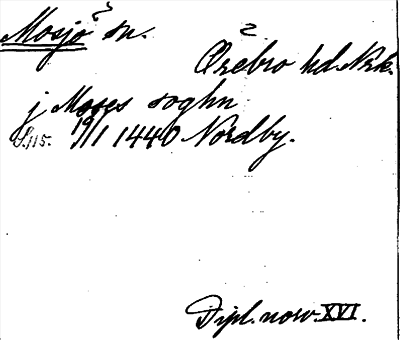 Mosjö sn.
Örebro hd. Nrk.
j Moses soghn
S. 115. 19/1 1440 Nordby.
Dipl. norv. XVI.